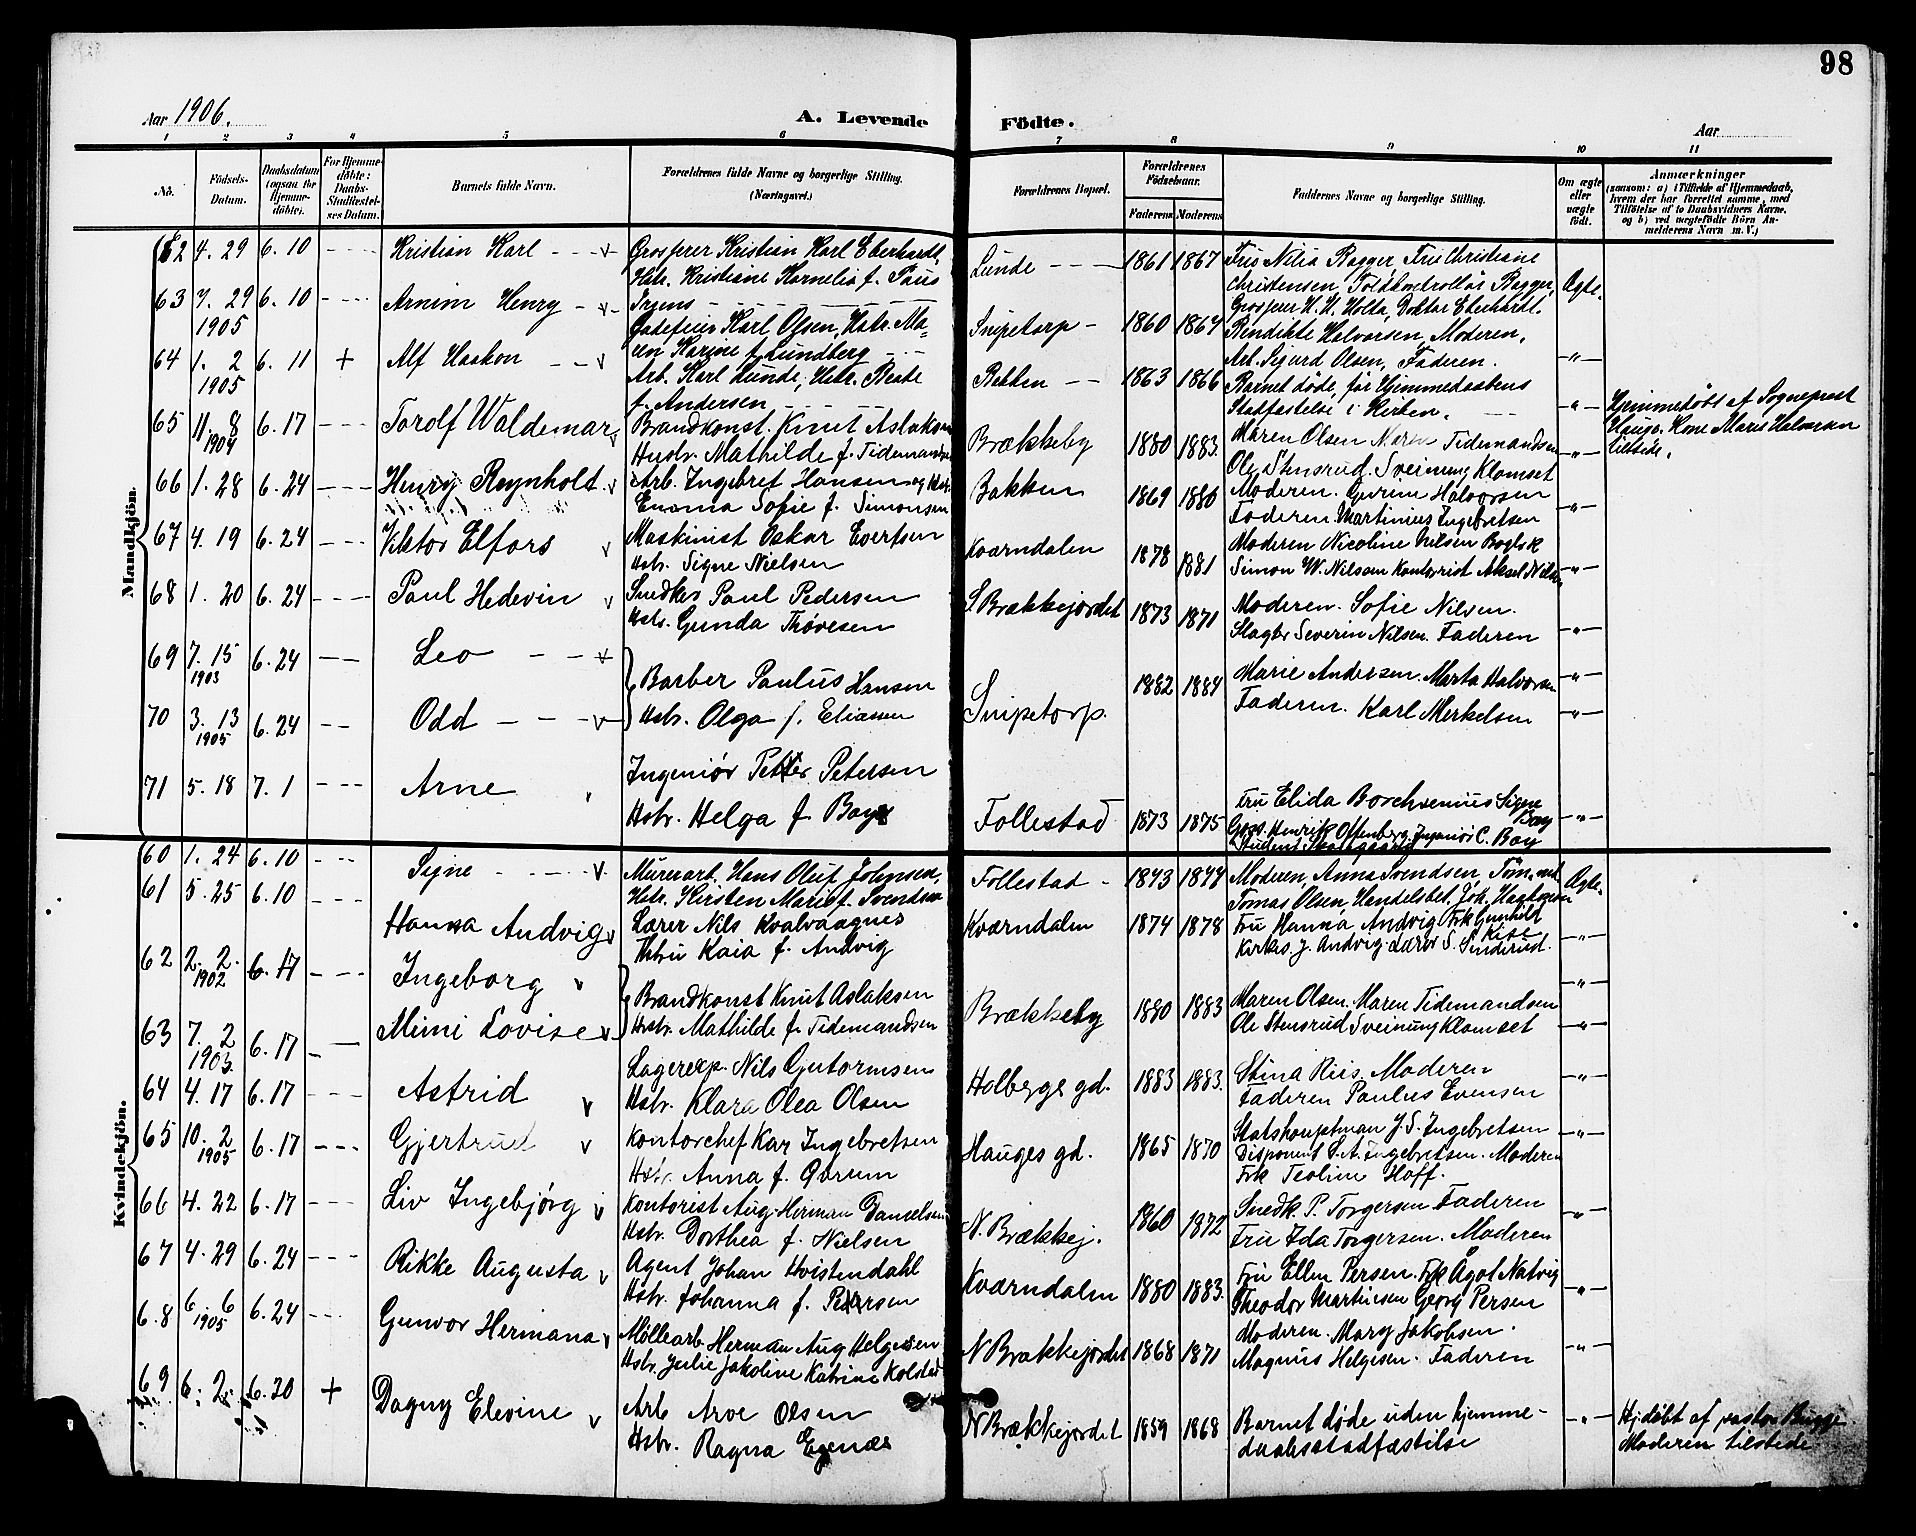 98
Aar 1906.
A. Levende Födte.
Aar
1 2 3 4 5 6 7 8 9 10 11
No. Födsels-Datum. Daabsdatum (ogsaa for Hjemme-döbte). For Hjemme-döbte: Daabs-Stadfæstel-ses Datum. Barnets fulde Navn. Forældrenes fulde Navne og borgerlige Stilling. (Næringsvei.) Forældrenes Bopæl. Forældrenes Födselsaar. Faderens Moderens Faddernes Navne og borgerlige Stilling. Om ægte eller uægte födt. Anmærkninger (saasom: a) i Tilfælde af Hjemmedaab, hvem der har forrettet samme, med Tilföielse af to Daabsvidners Navne, og b) ved uægtefödte Börn An-melderens Navn m. V.)
Mandkjön.
62 4. 29 6. 10 Kristian Karl Grosserer Kristian Karl Eberhardt, Hstr. Kristiane Kornelia f. Paus Lunde 1861 1867 Fru Nilia Bagger Frue Christiane Christensen, Toldkontrollör Bagger, Grosserer H. H. Holta, Doktor Eberhardt. Ægte
63 7. 29 1905 6. 10 Arnim Henry Karl Olsen, Hstr. Maren Karine f. Lundberg Snipetorp 1860 1864 Bendikte Halvorsen, Moderen, Arb. Sigurd Olsen, Faderen. -"-
64 1. 2 1905 6. 11 + Alf Haakon Arb. Karl Lunde, Hstr. Beate f. Andersen Bekken 1863 1866 Barnet döde, för Hjemmedaabens Stadfæstelse i Kirken. -"- Hjemmedøbt af Sognepræst Hauge. Kone Marie Halvorsen tilstede.
65 11. 8 1904 6. 17 Torolf Waldemar Brandkonst. Knut Aslaksen Hustr. Mathilde f. Tidemandsen Brækkeby 1880 1883. Maren Olsen Maren Tidemandsen Ole Stensrud. Sveinung Klomset -"-
66 1. 28 6. 24 Henry Reynholt Arb. Ingebret Hansen og Hstr. Emma Sofie f. Simonsen Bakken 1869 1880 Moderen. Gurine Halvorsen Faderen Martinius Ingebretsen -"-
67 4. 19 6. 24 Viktor Elfors Maskinist Oskar Evertsen Hstr. Signe Nielsen Kværndalen 1878 1881 Moderen Nicoline Nilsen Simon W. Nilssen Kontorist Aksel Nilsen -"-
68 1. 20 6. 24 Paul Hedevin Snedker Paul Pedersen Hstr. Gunda Thøvesen S Brækkejordet 1873 1871 Moderen. Sofie Nilsen. Slagter Severin Nilsen. Faderen -"-
69 7. 15 1903 6. 24 Leo Barber Paulus Hansen -"-
70 3. 13 1905 6. 24 Odd Hstr. Olga f. Eliassen Snipetorp. 1882 1884 Marie Andersen. Marta Halvorsen Faderen. Karl Merkelsen -"-
71 5. 18 7. 1 Arne Ingeniør Petter Petersen Hstr. Helga f. Boye Follestad 1873 1875 Fru Elida Borchsenius Signe Boy Gros. Henrik Offenberg. Ingeniør C. Boy Student -"-
Kvindekjön.
60 1. 24 6. 10 Signe Murerarb. Hans Oluf Johnsen, Hstr. Kirsten Marie f. Svendsen Follestad 1843 1844 Moderen Anna Svendsen, Töm.md. Tomas Olsen, Handelsbet. Joh. Ægte
61 5. 25 6. 10 Hanna Andvig Lærer Nils Kvalvaagnes Hstru Kaia f. Andvig Kværndalen 1874 1878 Fru Hanna Andvig Frk Gunhild Kise Kirkes. J. Andvig. Lærer S. Sinderud. -"-
62 2. 2. 1902 6. 17 Ingeborg Brandkonst Knut Aslaksen -"-
63 7. 2 1903. 6. 17 Mimi Lovise Hstr. Mathilde f. Tidemandsen Brækkeby 1880 1883 Maren Olsen. Maren Tidemandsen Ole Stensrud Sveinung Klomset -"-
64 4. 17 6. 17 Astrid Lagerexp. Nils Gutormsen Hstr. Klara Olea Olsen Holbergs gd. 1883 1883. Stina Riis. Moderen Faderen Paulus Evensen -"-
65 10. 2 1905 6. 17 Gjertrud Kontorchef Kar Ingebretsen Hstr. Anna f. Qvrum Hauges gd. 1865 1870 Statshauptman J. S. Ingebretsen Disponent S. A. Ingebretsen. Moderen Frk Teoline Hoff. -"-
66 4. 22 6. 17 Liv Ingebjørg Kontorist Aug. Herman Danielsen Hstr. Dorthea f. Nielsen N. Brækkej. 1860 1872 Snedk. P. Torgersen Faderen Fru Ida Torgersen. Moderen -"-
67 4. 29 6. 24 Rikke Augusta Agent Johan Hvistendahl Hstr. Johanna f. Petersen Kværndalen 1880 1883. Fru Ellen Persen. Frk Ågot Natvig Theodor Martinsen Georg Persen -"-
6.8 6. 6 1905 6. 24 Gunvor Hermana Møllearb. Herman Aug Helgesen Hstr. Julie Jakoline Katrine Kolstad N Brækkejordet 1868 1871 Moderen. Mary Jakobsen. Magnus Helgesen. Faderen -"-
69 6. 2. 6. 20 + Dagny Elevine Arb Arve Olsen Hstr. Ragna Egenæs N Brækkejordet 1859 1868 Barnet døde uden hjemme-daabsstadfæstelse -"- Hj.døbt af pastor Bugge Moderen tilstede